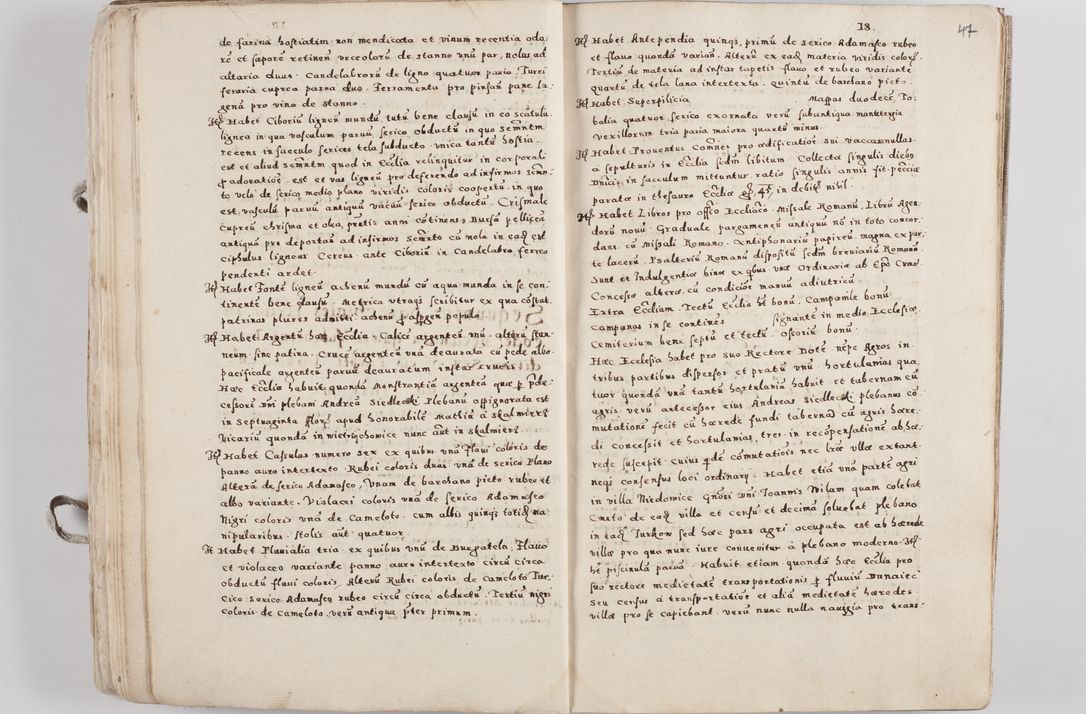 de farina hostiatim non mendicata et vinum recentia odo-
rē et saporē retinen̄ vrceolorū de stanno vnū par, nolas ad
altaria duas. Candelabrorū de ligno quatuor paria. Turri
feraria cuprea parua duo. Ferramenta pro pinsan̄ pane la-
gena pro vino de stanno.
Itē Habet Ciboriū ligneū mundū tutū bene clausū in eo scatula
lignea in qua vasculum paruū serico obductū in quo Sacrm̄tm̄
recens in sacculo sericeo tela subducto vnica tantū hostia
est et aliud sacrm̄tm̄ quod in Ecclīa relinquitur in corporali
p adoratiōe est et vas ligneū pro deferendo ad infirmos sacrō-
to velo de serico medio plano viridis coloris coopertū in quo
est vasculū paruū antiquū vacuū serico obductū. Crismale
cupreū chrisma et olea pn̄tis anni cōtinens Bursa pellicea
antiqua pro deportan̄ ad infirmos Sacrm̄to cū nola in eadē est
ciphulus ligneus Cereus ante Ciboriū in Candelabro ferreo
pendenti ardet.
Itē Habet Fontē ligneū achenū mundū cū aqua munda in se con-
tinentē bene clausū. Metrica vtraqz scribitur ex qua cōstat
patrinos plures admitti achenū p aspgen̄ populo.
Itē Habet Argentū haec Ecclīa. Calicē argenteū vnū. alterū stan-
neum sine patina. Crucē argenteā vnā deaurata cū pede albo
pacificale argenteū paruū deauratum instar crucis.
Haec Ecclīa habuit quondā Monstrantiā argenteā quae p prde-
cessorē Dn̄i plebani Andreā Siedlecki Plebanū oppignorata est
in septuaginta flor̄ apud honorabilē Mathiā à Skalmierz
Vicariū quondā in Wietrzychowice nunc aūt in Skalmierz
Itē Habet Casulas numero sex ex quibus vnā flaui coloris de
panno auro intertexto. Rubei coloris duas vnā de serico Plano
Alterā de serico Adamasco, Vnam de barchano picto rubeo et
albo variante. Violacei coloris vnā de serico Adamasco
Nigri coloris vnā de Cameloto. cum albis quinqz totidē ma-
nipularibus. Stolis aūt quatuor.
Itē Habet Pluuialia tria ex quibus vnū de Burgatela, Flauo
et violaceo variante panno auro intertexto circū circa
obductū flaui coloris, Alterū Rubei coloris, de Cameloto Tur-
cico serico Adamasco rubeo circū circa obductū. Tertiū nigri
coloris de Cameloto. verū antiqua pter primum.
18.
47
Itē Habet Antependia quinqz, primū de serico Adamasco rubeo
et flauo quondā varian̄. Alterū ex eadē materia viridis coloris
Tertiū de materia ad instar tapetis flauo et rubeo variante
quartū de tela lana intertexta. quintū de barchano picto.
Itē Habet Superpilicia Mappas duodecē, To-
balia quatuor serico exornata verū subantiqua manutergia
vexillorum tria paria maiora quartū minus.
Itē Habet Prouentus Com̄nes pro aedificatiōe sui vaccas nullas.
a sepulturis in Ecclīa secdm̄ libitum. Collecta singulis diebus
Dn̄icis in sacculum mittuntur. ratio singulis annis fit. peccīa
parata in thesauro Ecclīae 45. in debitis nihil.
Itē Habet Libros pro offo Ecclīaco. Missale Romanū, Librū Agen-
dorū nouū. Graduale pargameneū antiquū nō in toto concor-
dans. cū Missali Romano. Antiphonariū papireū magna ex par-
te lacerū. Psalteriū Romanū dispositū secdm̄ breuiariū Romanū.
Sunt et Indulgentiae binae ex qbus vnae Ordinariae ab Epō Crac.
Concessae alterae. cū condicioē manuū adiutricū.
Extra Ecclīam. Tectū Ecclīa hēt bonū. Campanile bonū
Campanas in se continēs signantē in medio Ecclesiae.
Cemiterium bene septū et tectū. Ostoriū bonū.
Haec Ecclesia habet pro suo Rectore Dotē nēpe Agros in
tribus partibus dispersos et pratū vnū. hortulanias qua-
tuor quondā vnā tantū hortulaniā habuit et tabernam cū
agris verū antecessor eius Andreas Siedlecki plebanus cō-
mutatione fecit cū haerede fundi tabernā cū agris haere-
di concessit et hortulanias, tres, in recōpensationē ab hae-
rede suscepit. cuius qde cōmutatiōis nec lrae vllae extant,
neqz consensus loci ordinarij. Habet etiā vnā partē agri
in villa Niedomice gnōsi Dn̄i Ioannis Wilam quam colebat
Cmeto de eadē villa et censū et decimā soluebat plebano
in eadē Iurkow sed haec pars agri occupata est ab haerede
villae pro qua nunc iure conuenitur à plebano moderno. Itē
hēt piscinulā paruā. Habuit etiam quondā haec Ecclīa pro
suo rectore medietatē transportationis p fluuiū Dunaiec
seu census a transportatiōe et aliā medietatē haeredes
villae pro se capiebant. verū nunc nulla nauigia pro trans-